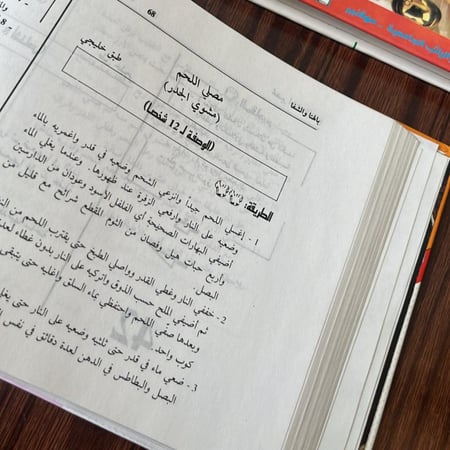 68
بالهنا والشفا
طبق خليجي
مصلي اللحم
(مشوي الجدر)
(الوصفة لـ 12 شخصا)
الطريقة:
1 - إغسل اللحم جيداً وانزعي الشحم وضعيه في قدر واغمريه بالماء
وضعيه على النار وارفعي الزفرة عند ظهورها، وعندما يغلي الماء
أضيفي البهارات الصحيحة أي الفلفل الأسود وعودان من الدارسين
وأربع حبات هيل وفصان من الثوم المقطع شرائح مع قليل من
البصل
2 - خففي النار وغطي القدر وواصل الطبخ حتى يقترب اللحم من
ثم أضيفي الملح حسب الذوق واتركيه على النار بدون غطاء لعدة
وبعدها صفي اللحم واحتفظي بماء السلق وغليه حتى يتبقى
كوب واحد.
3 - ضعي ماء في قدر حتى ثلثيه وضعيه على النار حتى يغلي
البصل والبطاطس في الدهن لعدة دقائق في نفس